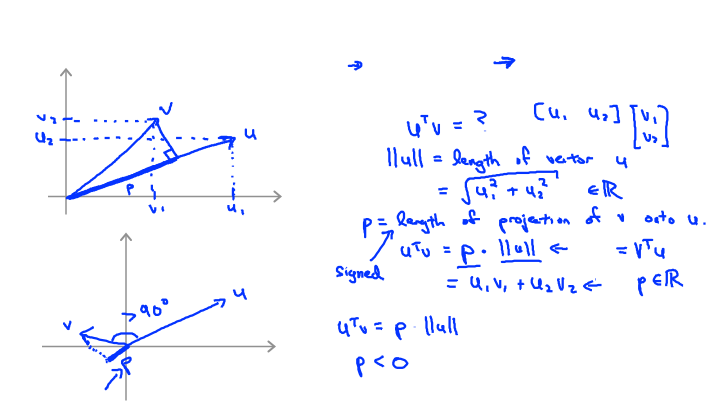 v₂
u₂
v
u
p
v₁
u₁
> 90°
u
v
p
uᵀv = ? [u₁ u₂] [v₁ v₂]
||u|| = length of vector u
= √(u₁² + u₂²) ∈ ℝ
p = length of projection of v onto u.
signed
uᵀv = p · ||u|| ← = vᵀu
= u₁v₁ + u₂v₂ ← p ∈ ℝ
uᵀv = p · ||u||
p < 0